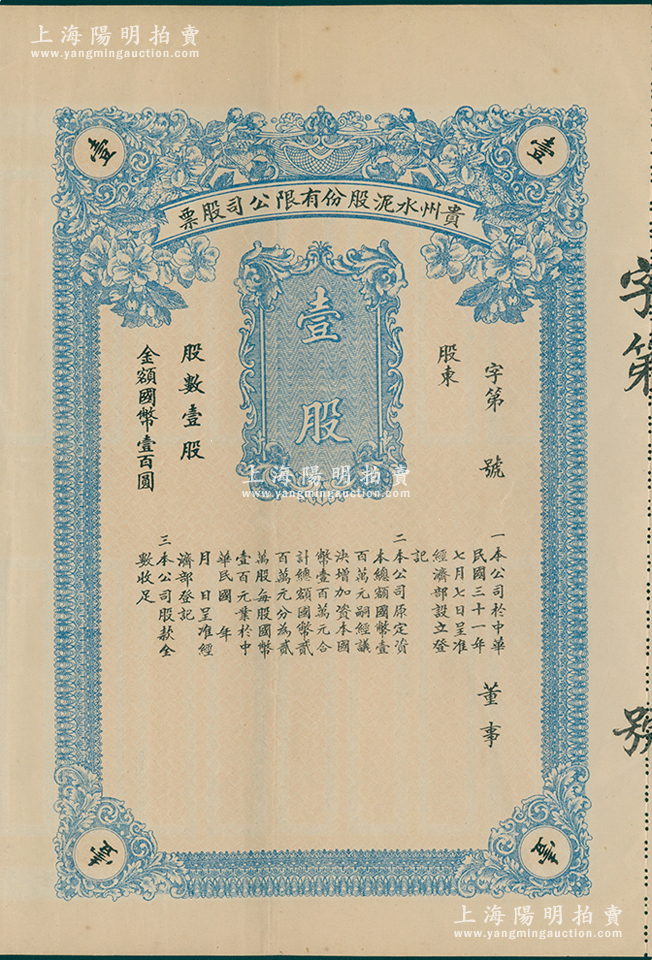 上海陽明拍賣
www.yangmingauction.com
壹
壹
票股司公限有份股泥水州貴
壹股
字第 號
股東
股數壹股
金額國幣壹百圓
上海陽明拍賣
www.yangmingauction.com
一本公司於中華
民國三十一年
七月七日呈准
經濟部設立登
記
二本公司原定資
本總額國幣壹
百萬元嗣經議
決增加資本國
幣壹百萬元合
計總額國幣貳
百萬元分為貳
萬股每股國幣
壹百元業於中
華民國 年
月 日呈准經
濟部登記
三本公司股款全
數收足
董事
字第 號
壹
壹
上海陽明拍賣
www.yangmingauction.com